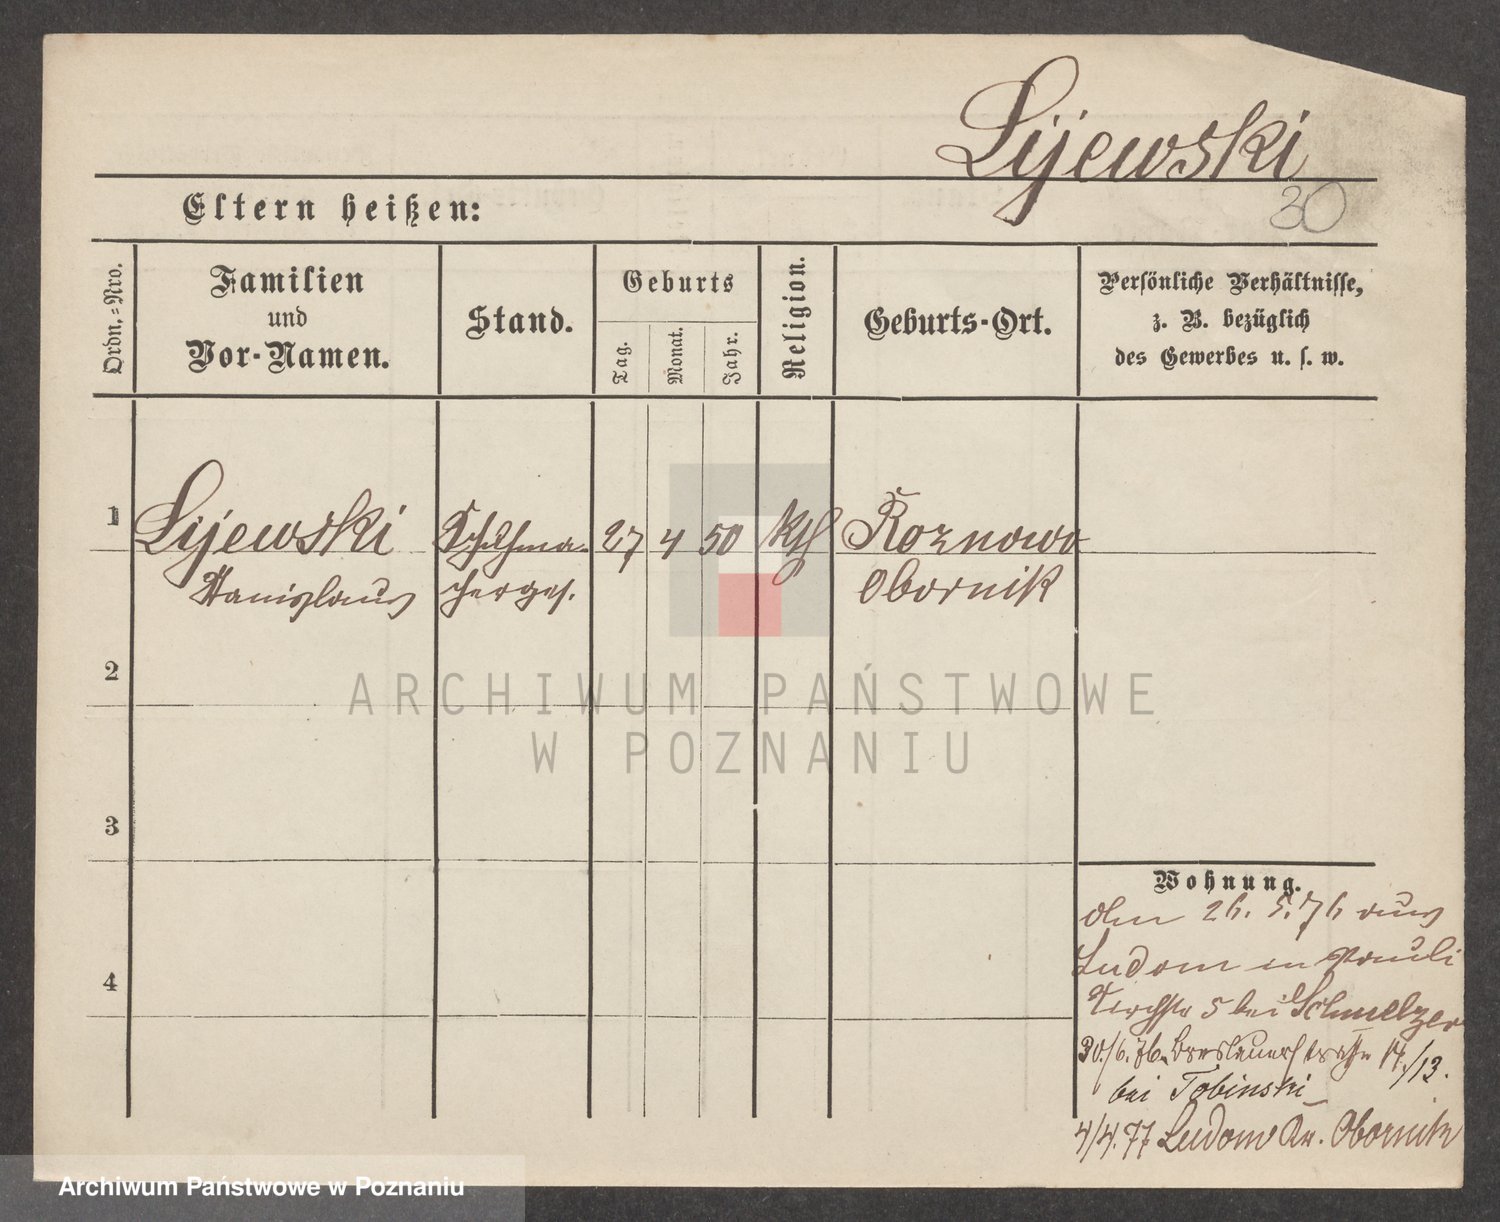 Lijewski
30
Eltern heißen:
Ordn.=Nro.
Familien
und
Vor-Namen.
Stand.
Geburts
Tag.
Monat.
Jahr.
Religion.
Geburts-Ort.
Persönliche Verhältnisse,
z. B. bezüglich
des Gewerbes u. s. w.
1
Lijewski
Stanislaus
Schuhma-
cherges.
27
4
50
Kth
Roznowo
Obornik
2
3
4
Wohnung.
den 26. 5. 76 aus
Ludom in Pauli
Kirchstr 5 bei Schmelzer
30./6. 76. Breslauerstrasse 14/13.
bei Tobinski
4/4. 77 Ludom Kr. Obornik
ARCHIWUM PAŃSTWOWE
W POZNANIU
Archiwum Państwowe w Poznaniu